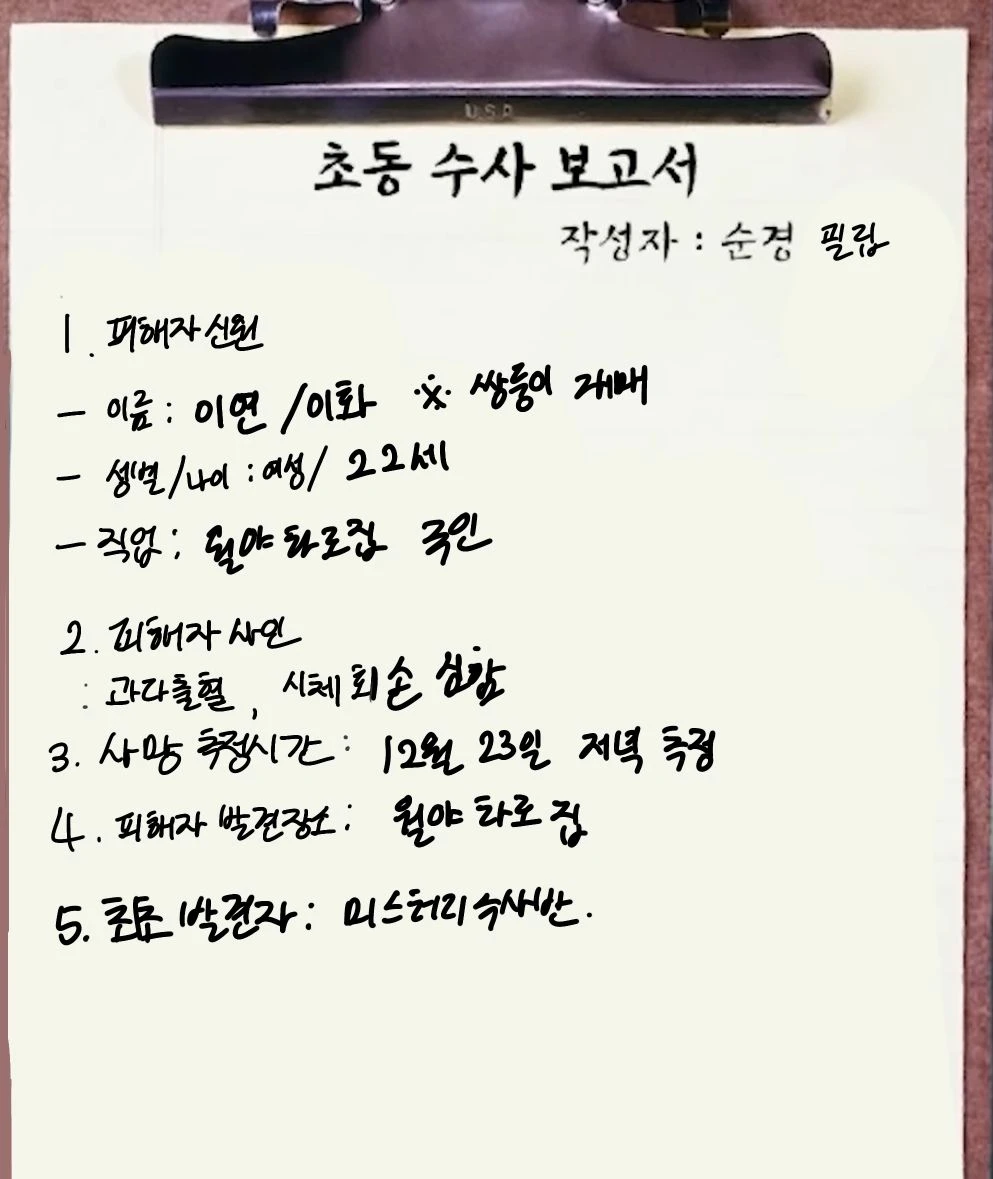 U.S.A
초동 수사 보고서
작성자 : 순경 필립
1. 피해자 신원
- 이름 : 이연 / 이화 ※ 쌍둥이 자매
- 성별/나이 : 여성/ 22세
- 직업 : 월야 타로집 주인
2. 피해자 사인
: 과다출혈, 시체 훼손 심함
3. 사망 추정시간 : 12월 23일 저녁 추정
4. 피해자 발견장소 : 월야 타로집
5. 최초 발견자 : 미스터리 수사반.